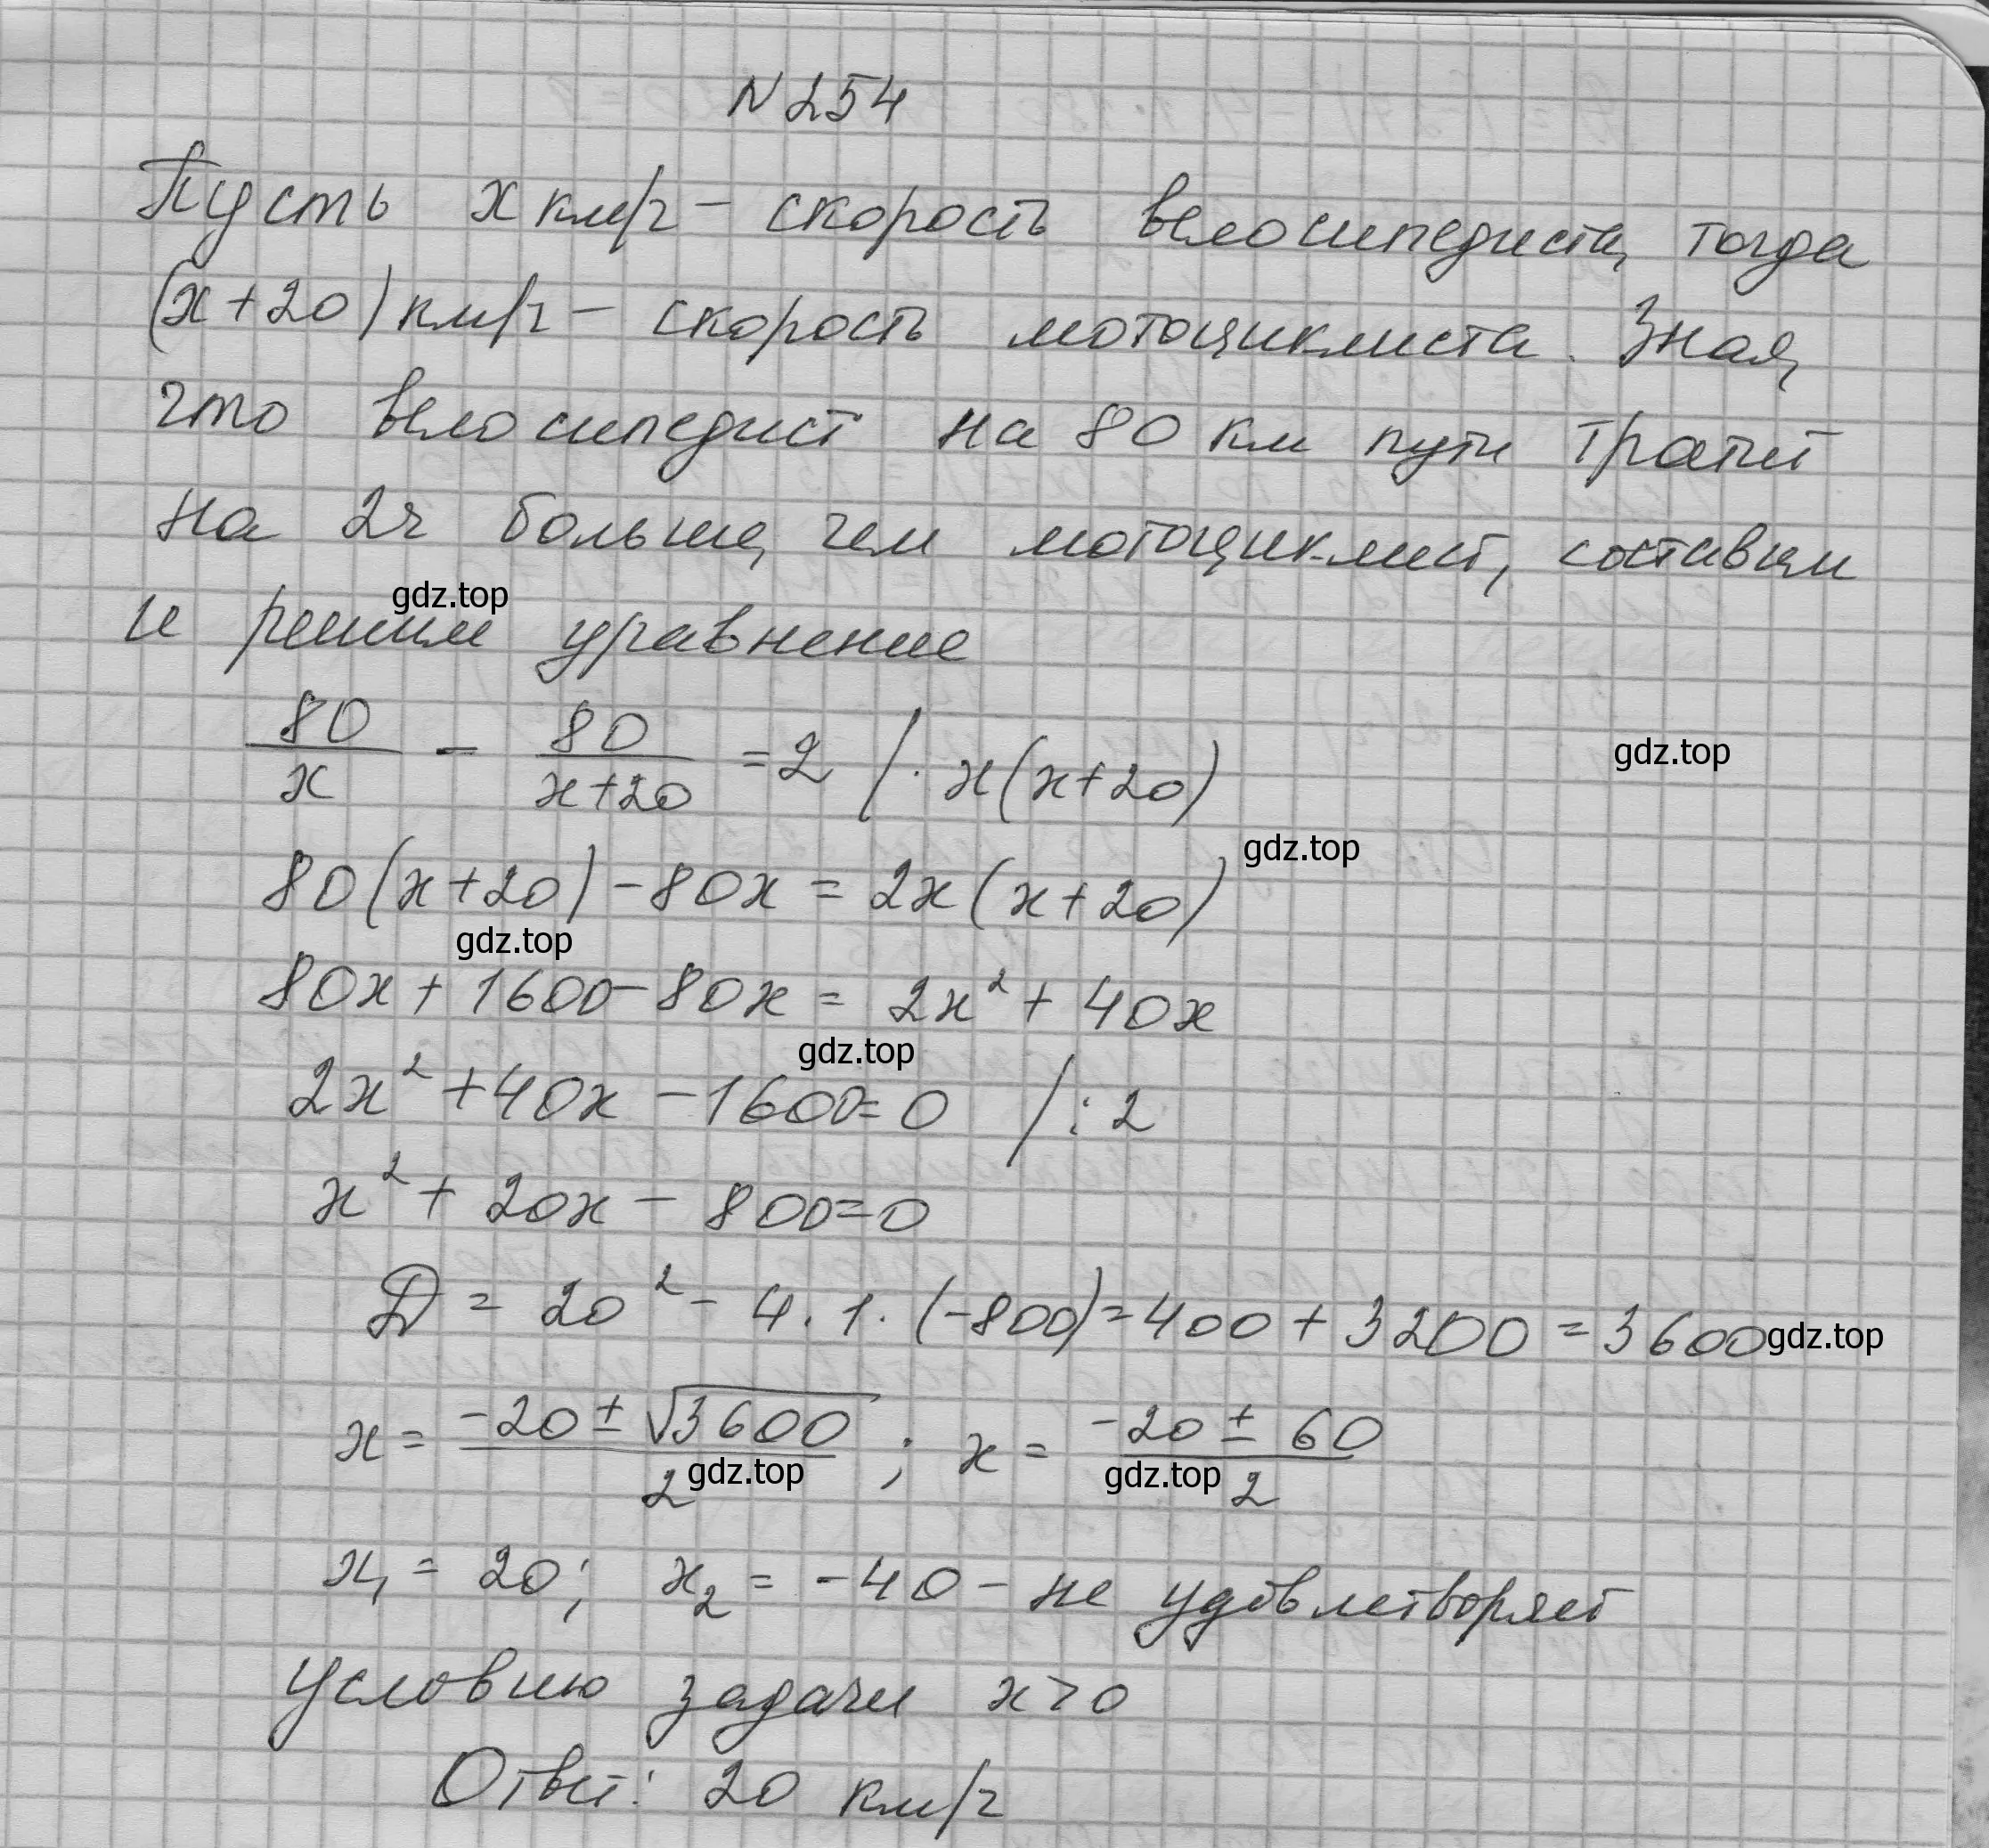 N 254
Пусть x км/ч – скорость велосипедиста, тогда
(x+20) км/ч – скорость мотоциклиста. Зная,
что велосипедист на 80 км пути тратит
на 2ч больше, чем мотоциклист, составим
gdz.top
и решим уравнение
80/x - 80/(x+20) = 2 / · x(x+20)
gdz.top
gdz.top
80(x+20) - 80x = 2x(x+20)
gdz.top
80x + 1600 - 80x = 2x² + 40x
gdz.top
2x² + 40x - 1600 = 0 / : 2
x² + 20x - 800 = 0
D = 20² - 4 · 1 · (-800) = 400 + 3200 = 3600
gdz.top
x = (-20 ± √3600)/2 ; x = (-20 ± 60)/2
gdz.top gdz.top
x₁ = 20; x₂ = -40 - не удовлетворяет
условию задачи x > 0
Ответ: 20 км/ч